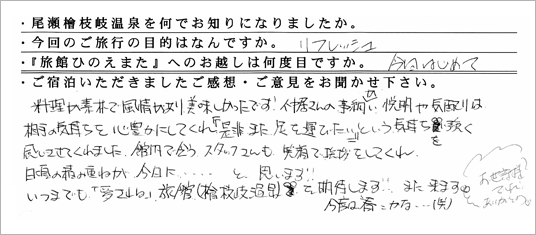 ・尾瀬檜枝岐温泉を何でお知りになりましたか。
・今回のご旅行の目的はなんですか。 リフレッシュ
・『旅館ひのえまた』へのお越しは何度目ですか。 今回はじめて
・ご宿泊いただきましたご感想・ご意見をお聞かせ下さい。
料理が素朴で風情があり美味しかったです! 仲居さんの 説明や気配りは
相手の気持ちを心豊かにしてくれ「是非また足を運びたい」という気持ちを強く
感じさせてくれました。館内で会うスタッフさんも、笑顔で挨拶をしてくれ、
日々の積み重ねが今日に‥‥‥と、思います!!
いつまでも 旅館(檜枝岐 )を期待します!! また来ます。
今度は春かな…(笑)
お世話様
でした
ありがとう。